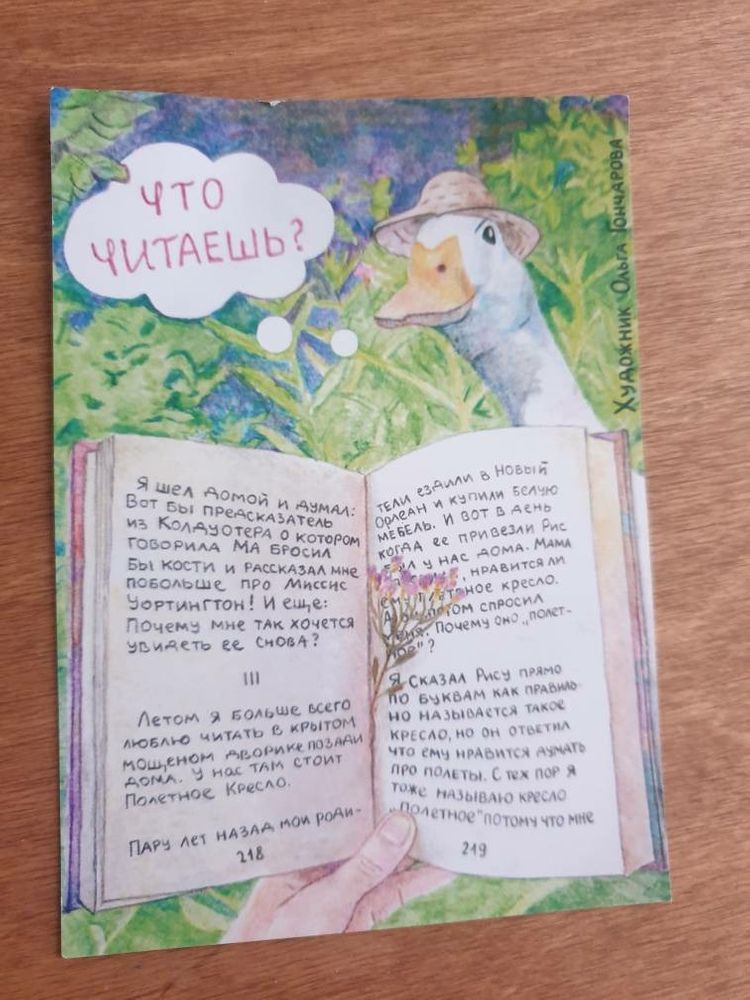 ЧТО
ЧИТАЕШЬ?
Художник Ольга Гончарова
Я шел домой и думал:
Вот бы предсказатель
из Колдуотера о котором
говорила Ма бросил
бы кости и рассказал мне
побольше про Миссис
Уортингтон! И еще:
Почему мне так хочется
увидеть ее снова?
III
Летом я больше всего
люблю читать в крытом
мощеном дворике позади
дома. У нас там стоит
Полетное Кресло.
Пару лет назад мои роди-
218
тели ездили в Новый
Орлеан и купили белую
мебель. И вот в день
когда ее привезли Рис
был у нас дома. Мама
нравится ли
ему кресло.
спросил
меня. Почему оно „полет-
ное"?
Я сказал Рису прямо
по буквам как правиль-
но называется такое
кресло, но он ответил
что ему нравится думать
про полеты. С тех пор я
тоже называю кресло
„Полетное" потому что мне
219